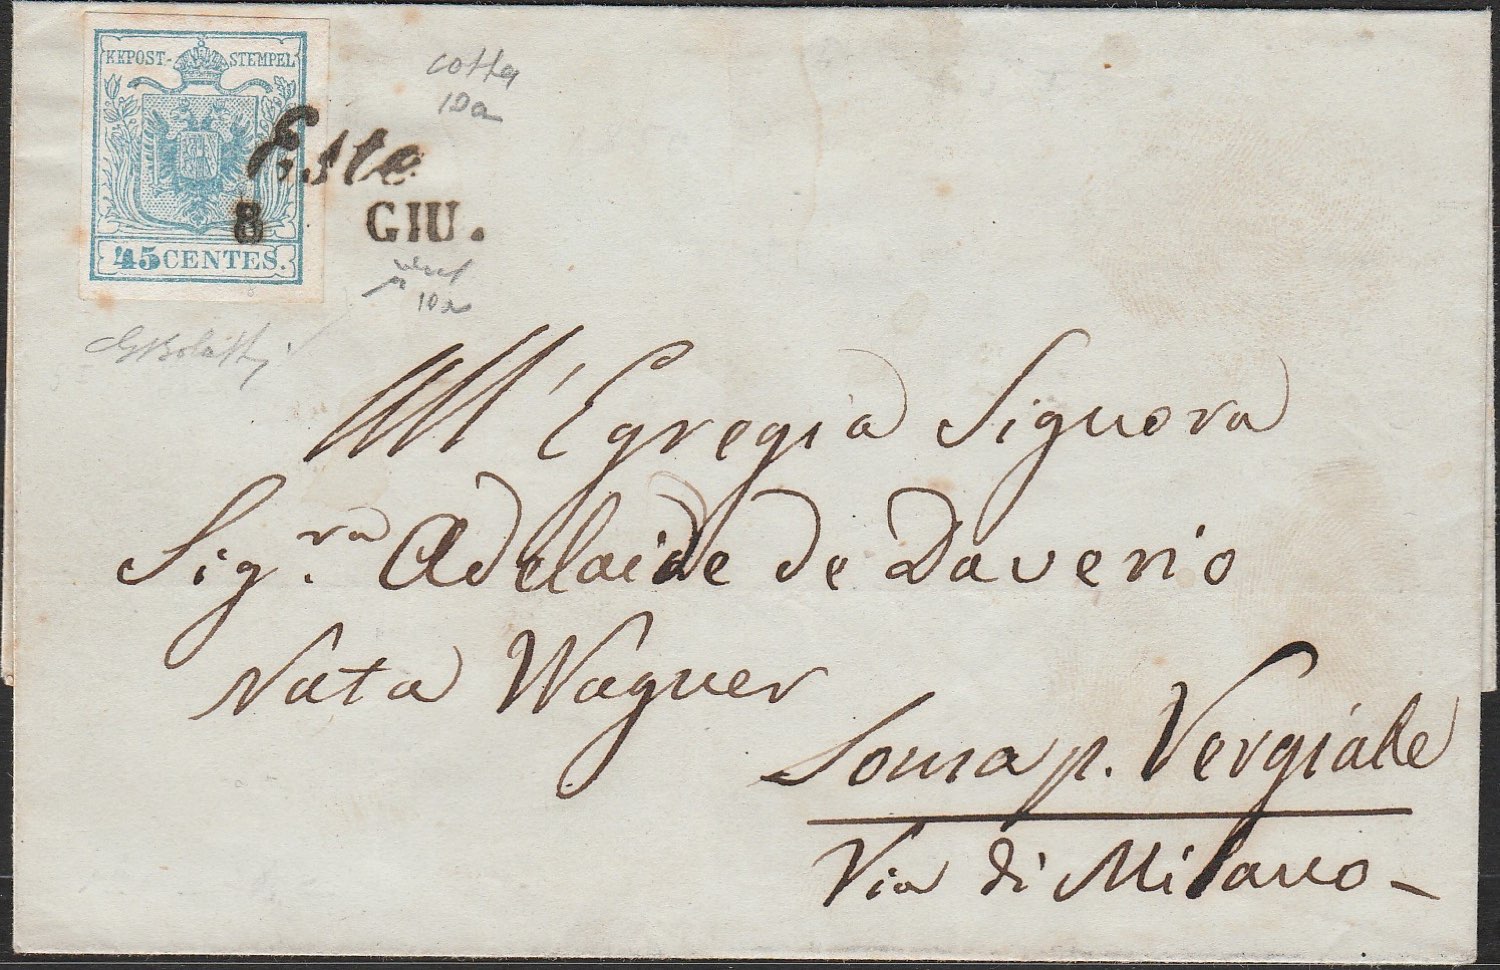 KKPOST- STEMPEL
45 CENTES.
Este
8 GIU.
cotta
10a
10a
GBolaffi
All'Egregia Signora
Sig.ra Adelaide de Daverio
Nata Wagner
Soma p. Vergiate
Via di Milano -